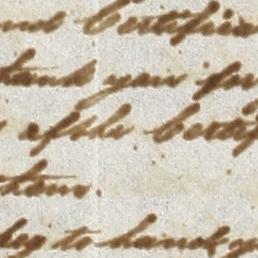 and Certifica
thank you for
of the Certif
them.
beg to hand y